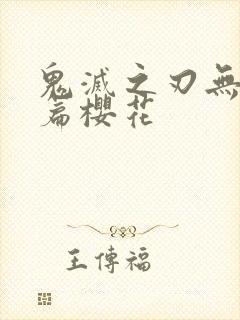 鬼滅之刃無
篇櫻花
王傳福